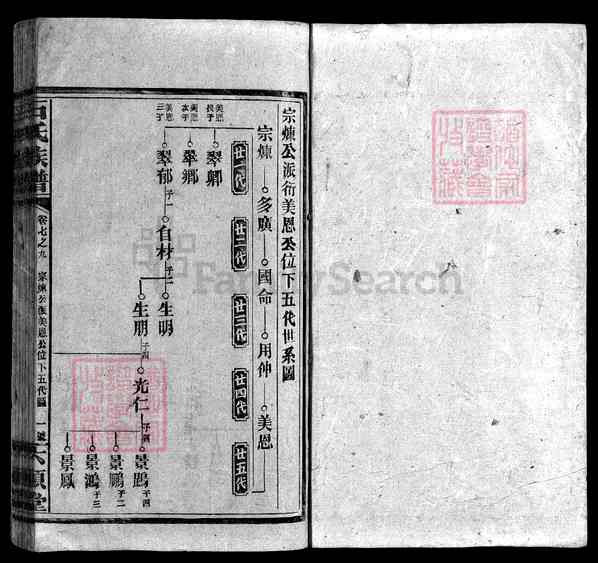 宗煉公派衍美恩公位下五代世系圖
宗煉 多廣 國命 用伸 美恩
廿一代 廿二代 廿三代 廿四代 廿五代
美恩長子 翠卿
美恩次子 翠鄉
美恩三子 翠郁 子一
自材 子二
生明
生朋 子四
光仁 子四
景鵾 子四
景鵬 子二
景鴻 子三
景鳳
石氏族譜
卷七之九 宗煉公派美恩公位下五代圖 一
六順堂
FamilySearch